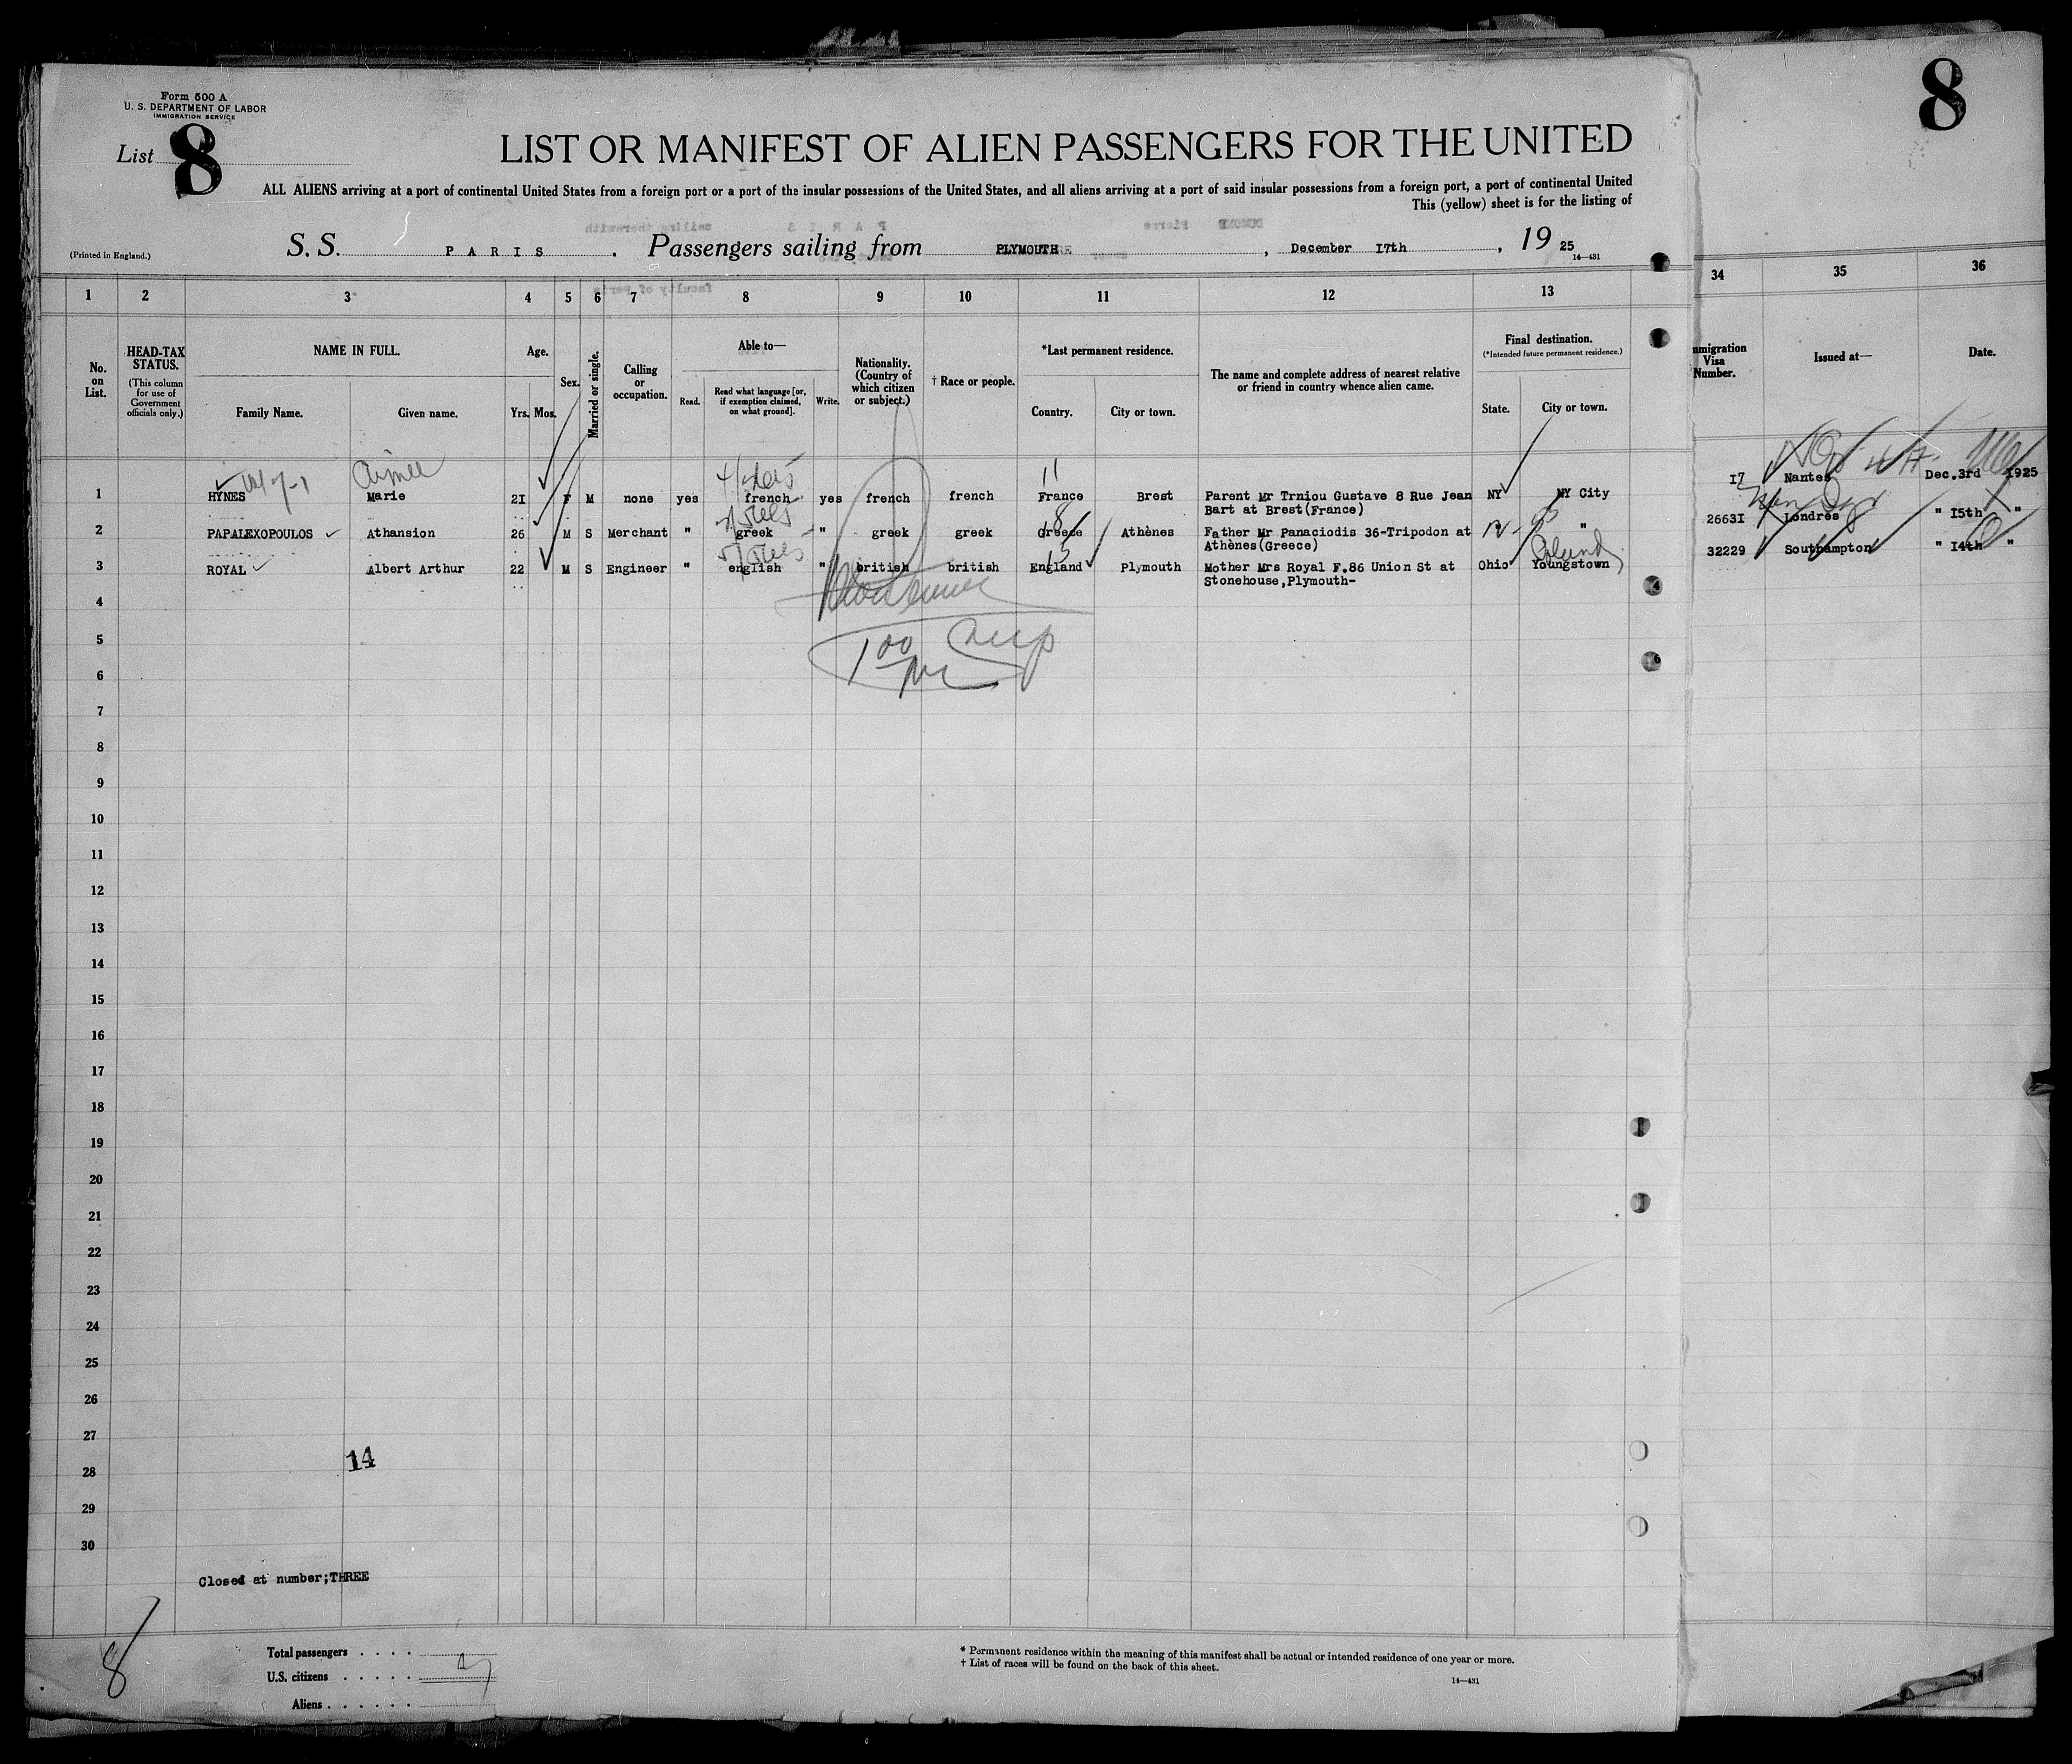 Form 500 A
U. S. DEPARTMENT OF LABOR
IMMIGRATION SERVICE
List 8
8
LIST OR MANIFEST OF ALIEN PASSENGERS FOR THE UNITED
ALL ALIENS arriving at a port of continental United States from a foreign port or a port of the insular possessions of the United States, and all aliens arriving at a port of said insular possessions from a foreign port, a port of continental United
This (yellow) sheet is for the listing of
(Printed in England.)
S. S. PARIS. Passengers sailing from PLYMOUTH, December 17th, 1925
14—431
1 2 3 4 5 6 7 8 9 10 11 12 13 34 35 36
No. on List.
HEAD-TAX STATUS.
(This column for use of Government officials only.)
NAME IN FULL.
Family Name. Given name.
Age.
Yrs. Mos.
Sex.
Married or single.
Calling or occupation.
Able to—
Read. Read what language [or, if exemption claimed, on what ground]. Write.
Nationality. (Country of which citizen or subject.)
† Race or people.
*Last permanent residence.
Country. City or town.
The name and complete address of nearest relative or friend in country whence alien came.
Final destination.
(*Intended future permanent residence.)
State. City or town.
mmigration Visa Number.
Issued at—
Date.
Aimee
11
1 HYNES Marie 21 F M none yes french yes french french France Brest Parent Mr Trniou Gustave 8 Rue Jean NY NY City 17 Nantes Dec.3rd 1925
Bart at Brest(France)
2 PAPALEXOPOULOS Athansion 26 M S Merchant " greek " greek greek Greece Athènes Father Mr Panaciodis 36-Tripodon at " 26631 Londres " 15th "
Athènes(Greece)
3 ROYAL Albert Arthur 22 M S Engineer " english " british british England Plymouth Mother Mrs Royal F.86 Union St at Ohio Youngstown 32229 Southampton " 14th "
Stonehouse,Plymouth-
4
5
6
7
8
9
10
11
12
13
14
15
16
17
18
19
20
21
22
23
24
25
26
27
14
28
29
30
Closed at number;THREE
8
Total passengers
U.S. citizens
Aliens
* Permanent residence within the meaning of this manifest shall be actual or intended residence of one year or more.
† List of races will be found on the back of this sheet.
14—431